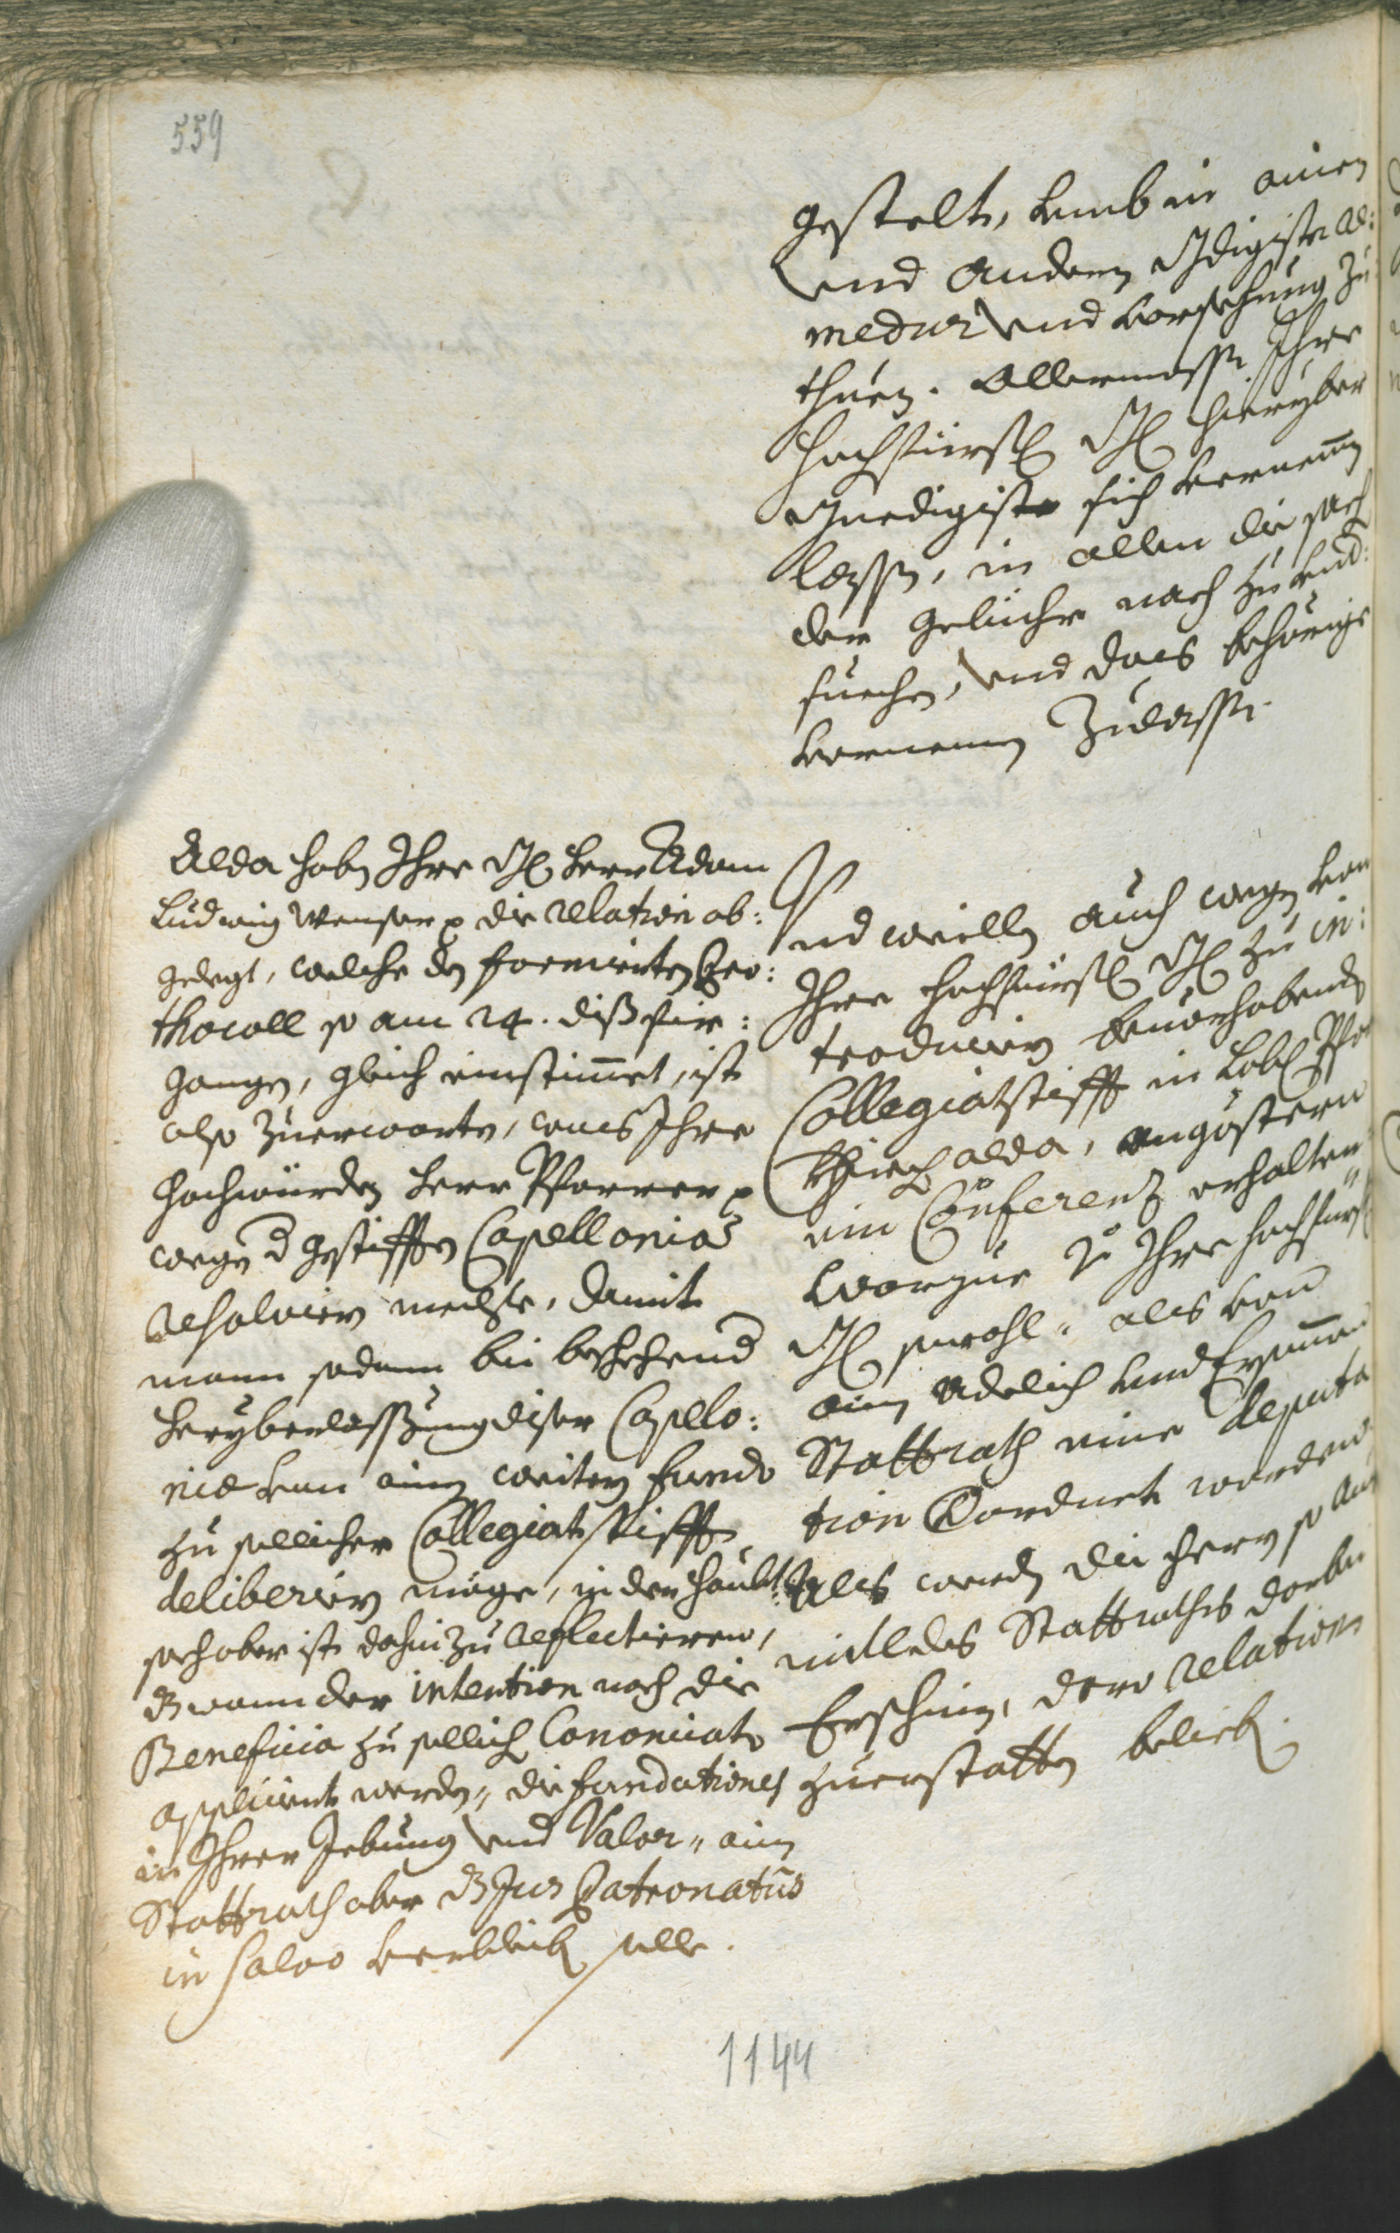 559
gestelt, umb in ainen
und andern gnedigiste Re:
medur und vorsehung zu
thuen. Allermassen Ihre
hochfürstl: Gl: hieryber
gnedigist sich vernemen
lassen, in allen die sach
der gebühr nach zu und:
suechen, und das behörige
vernemen zulassen.
Alda haben Ihre Gl: Herr Adam
Ludwig Wenser p die relation ab:
gelegt, welche den formierten Pro:
thocoll so am 24. diß für:
gangen, gleich einstimmet, ist
also zuerwarten, was Ihre
Hochwürden Herr Pfarrer p
wegen der gestifften Capellonias
resolvieren mechte, damit
mann sodann bei beschehend
veryberlassung diser Capello:
niæ von ainen weiten fundo
zu sollicher Collegiatstifft
deliberieren möge, in der haubt:
sach aber ist dahin zu reflectieren,
dz wann der intention nach die
Beneficia zu sollich Canonicat
appliciert werden, die fundationes
in Ihrer Iebung und Valor, ain
Stattrath aber dz Jus Patronatus
in salvo verbleiben solle.
Und weillen auch wegen von
Ihre hochfürstl: Gl: zu in:
troducieren bevorhabenden
Collegiatstifft in löbl: Pfarr
khirch alda, angöstern
ein Conferenz erhalten
worzue von Ihre hochfürstl:
Gl: sowohl, als von
ainen Adelich und Ersammen
Stattrath eine deputa
tion Verordnet worden
Als werden die herrn so auß
mitl des Stattraths darbei
Erschinen, dero relation
zuerstatten belieben.
1144